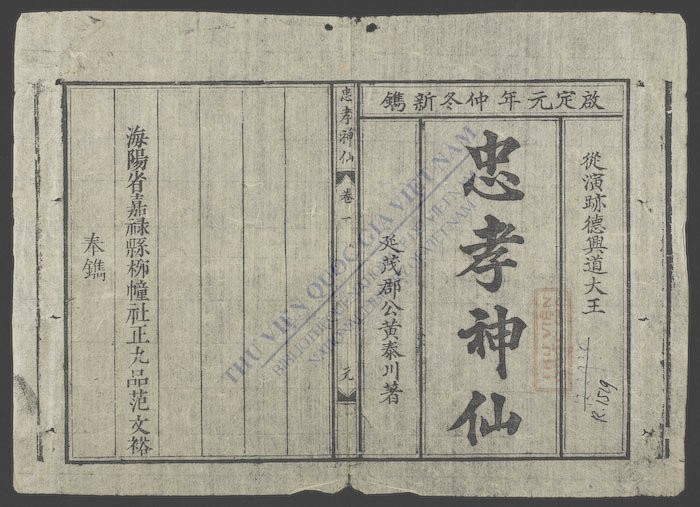 啟定元年仲冬新鐫
從演跡德興道大王
忠孝神仙
延茂郡公黃泰川著
忠孝神仙
卷一
元
海陽省嘉祿縣柳幢社正九品范文裕
奉鐫
THƯ VIỆN QUỐC GIA VIỆT NAM
BIBLIOTHÈQUE NATIONALE DU VIETNAM
NATIONAL LIBRARY OF VIETNAM
THƯ VIỆN
R.1519